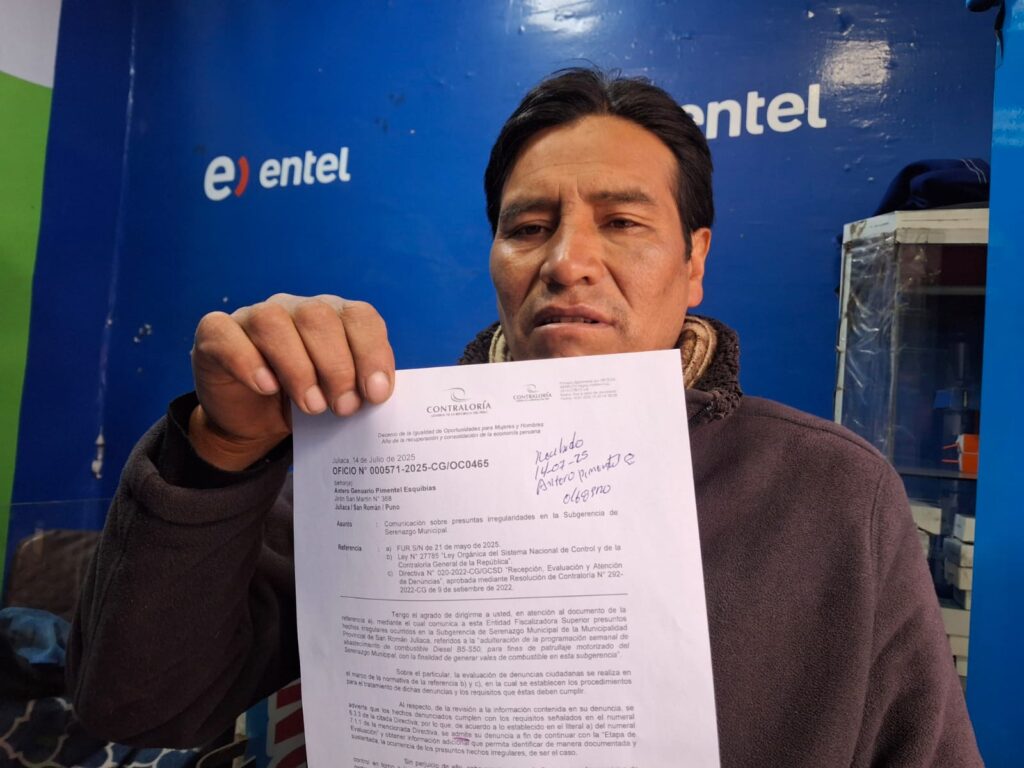 entel
entel
CONTRALORÍA
CONTRALORÍA
Decenio de la Igualdad de Oportunidades para Mujeres y Hombres
Año de la recuperación y consolidación de la economía peruana
Juliaca, 14 de Julio de 2025
OFICIO N° 000571-2025-CG/OC0465
Señor(a)
Antero Genuario Pimentel Esquibias
Jirón San Martín N° 368
Juliaca / San Román / Puno
Recibido
14-07-25
Antero Pimentel E
Asunto : Comunicación sobre presuntas irregularidades en la Subgerencia de
Serenazgo Municipal.
Referencia : a) FUR S/N de 21 de mayo de 2025.
b) Ley N° 27785 "Ley Orgánica del Sistema Nacional de Control y de la
Contraloría General de la República".
c) Directiva N° 020-2022-CG/GCSD "Recepción, Evaluación y Atención
de Denuncias", aprobada mediante Resolución de Contraloría N° 292-
2022-CG de 9 de setiembre de 2022.
Tengo el agrado de dirigirme a usted, en atención al documento de la
referencia a), mediante el cual comunica a esta Entidad Fiscalizadora Superior presuntos
hechos irregulares ocurridos en la Subgerencia de Serenazgo Municipal de la Municipalidad
Provincial de San Román Juliaca, referidos a la "adulteración de la programación semanal de
abastecimiento de combustible Diesel B5-S50, para fines de patrullaje motorizado del
Serenazgo Municipal, con la finalidad de generar vales de combustible en esta subgerencia".
Sobre el particular, la evaluación de denuncias ciudadanas se realiza en
el marco de la normativa de la referencia b) y c), en la cual se establecen los procedimientos
para el tratamiento de dichas denuncias y los requisitos que éstas deben cumplir.
Al respecto, de la revisión a la información contenida en su denuncia, se
advierte que los hechos denunciados cumplen con los requisitos señalados en el numeral
6.3.3 de la citada Directiva; por lo que, de acuerdo a lo establecido en el literal a) del numeral
7.1.1 de la mencionada Directiva, se admite su denuncia a fin de continuar con la "Etapa de
Evaluación" y obtener información adicional que permita identificar de manera documentada y
sustentada, la ocurrencia de los presuntos hechos irregulares, de ser el caso.
Sin perjuicio de ello,